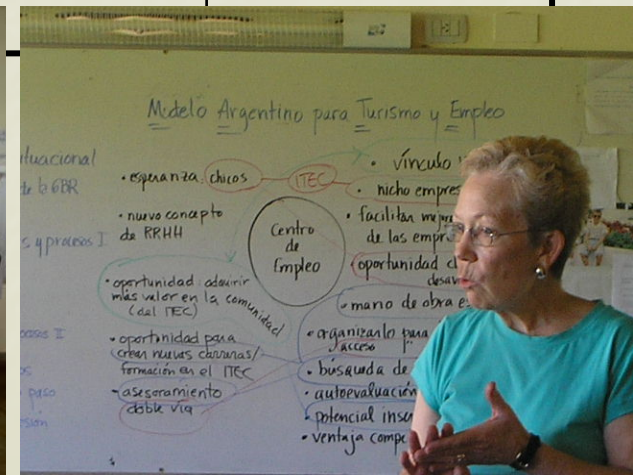 Modelo Argentino para Turismo y Empleo
de la GBR
s y procesos I
II
paso
• esperanza: chicos
• nuevo concepto
de RRHH
• oportunidad: adquirir
más valor en la comunidad
(del ITEC)
• oportunidad para
crear nuevas carreras/
formación en el ITEC
• asesoramiento
doble vía
ITEC
Centro
de
Empleo
• vínculo
• nicho empres
• facilitar
de las empr
oportunidad
• mano de obra
• organizarlo para
acceso
• búsqueda de
• autoevaluación
potencial
• ventaja compe